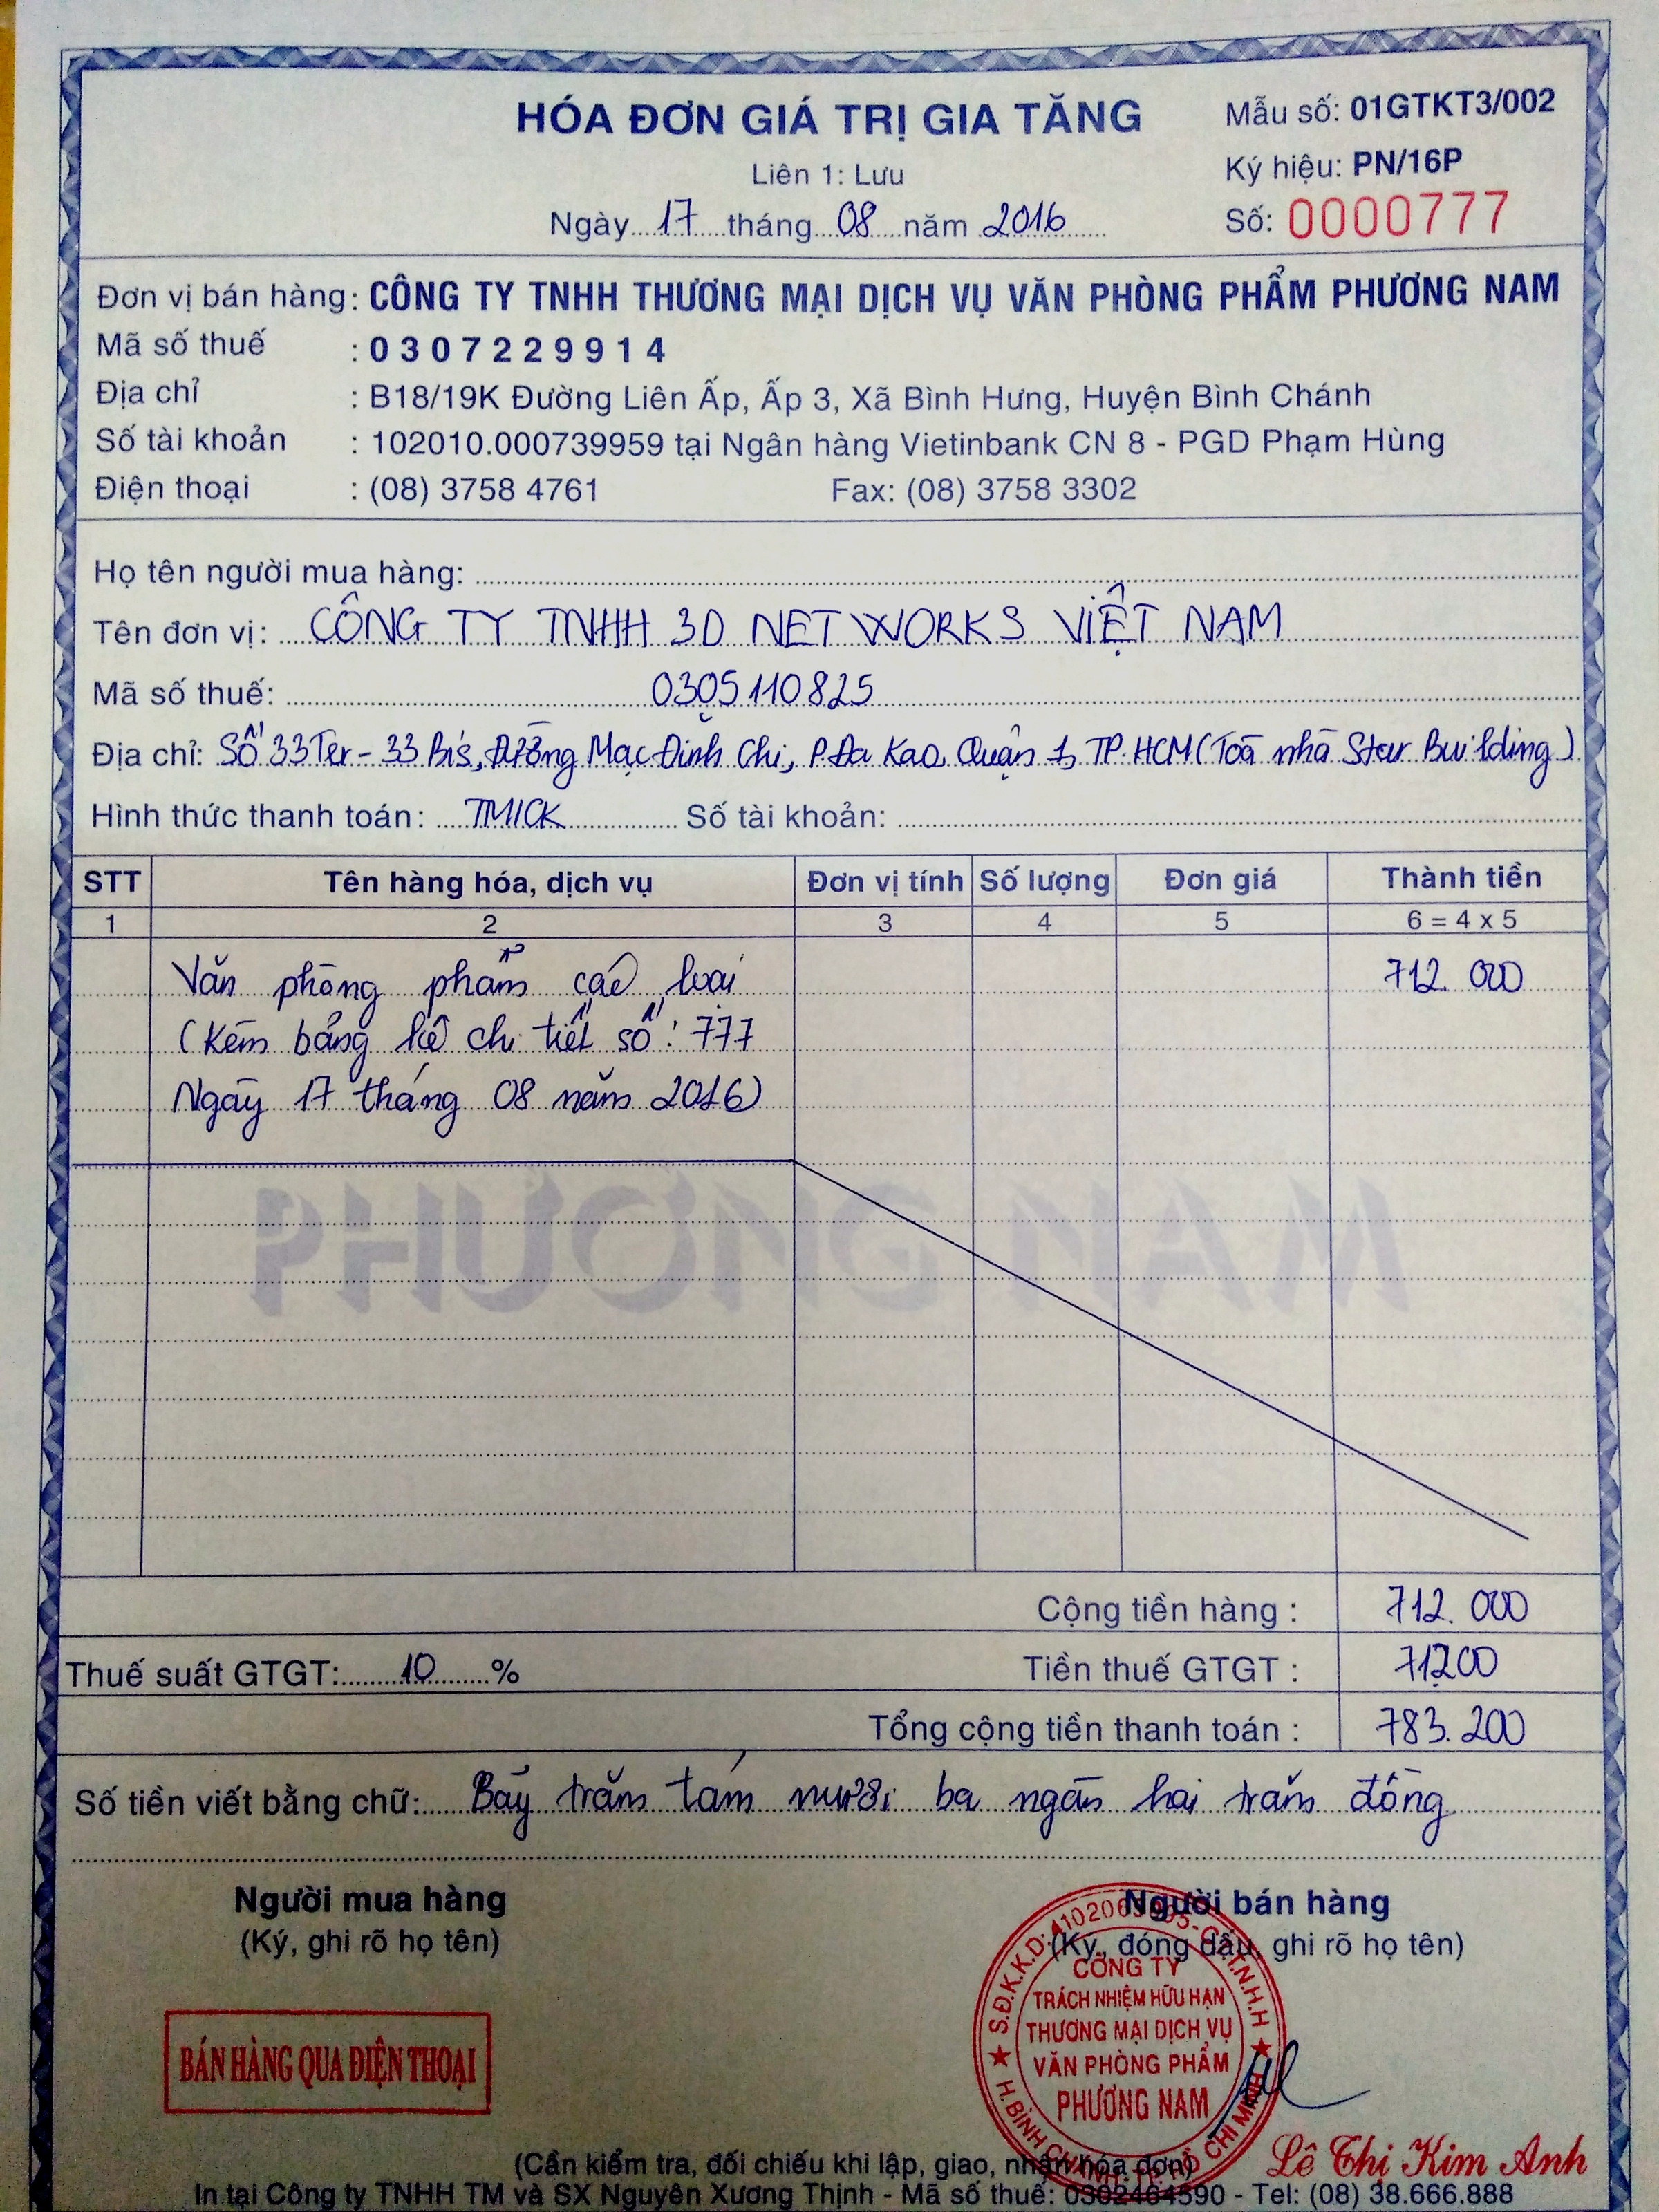 HÓA ĐƠN GIÁ TRỊ GIA TĂNG
Mẫu số: 01GTKT3/002
Liên 1: Lưu
Ký hiệu: PN/16P
Ngày 17 tháng 08 năm 2016
Số: 0000777
Đơn vị bán hàng: CÔNG TY TNHH THƯƠNG MẠI DỊCH VỤ VĂN PHÒNG PHẨM PHƯƠNG NAM
Mã số thuế : 0307229914
Địa chỉ : B18/19K Đường Liên Ấp, Ấp 3, Xã Bình Hưng, Huyện Bình Chánh
Số tài khoản : 102010.000739959 tại Ngân hàng Vietinbank CN 8 - PGD Phạm Hùng
Điện thoại : (08) 3758 4761 Fax: (08) 3758 3302
Họ tên người mua hàng:
Tên đơn vị: CÔNG TY TNHH 3D NETWORKS VIỆT NAM
Mã số thuế: 0305110825
Địa chỉ: Số 33Ter - 33 Bis, Đường Mạc Đĩnh Chi, P. Đa Kao, Quận 1, TP. HCM (Toà nhà Star Building)
Hình thức thanh toán: TM/CK Số tài khoản:
STT Tên hàng hóa, dịch vụ Đơn vị tính Số lượng Đơn giá Thành tiền
1 2 3 4 5 6 = 4 x 5
Văn phòng phẩm các loại 712.000
(Kèm bảng kê chi tiết số: 777
Ngày 17 tháng 08 năm 2016)
PHƯƠNG NAM
Cộng tiền hàng : 712.000
Thuế suất GTGT: 10 % Tiền thuế GTGT : 71.200
Tổng cộng tiền thanh toán : 783.200
Số tiền viết bằng chữ: Bảy trăm tám mươi ba ngàn hai trăm đồng
Người mua hàng Người bán hàng
(Ký, ghi rõ họ tên) (Ký, đóng dấu, ghi rõ họ tên)
CÔNG TY
TRÁCH NHIỆM HỮU HẠN
THƯƠNG MẠI DỊCH VỤ
VĂN PHÒNG PHẨM
PHƯƠNG NAM
BÁN HÀNG QUA ĐIỆN THOẠI
Lê Thi Kim Anh
(Cần kiểm tra, đối chiếu khi lập, giao, nhận hóa đơn)
In tại Công ty TNHH TM và SX Nguyên Xương Thịnh - Mã số thuế: 0302464590 - Tel: (08) 38.666.888